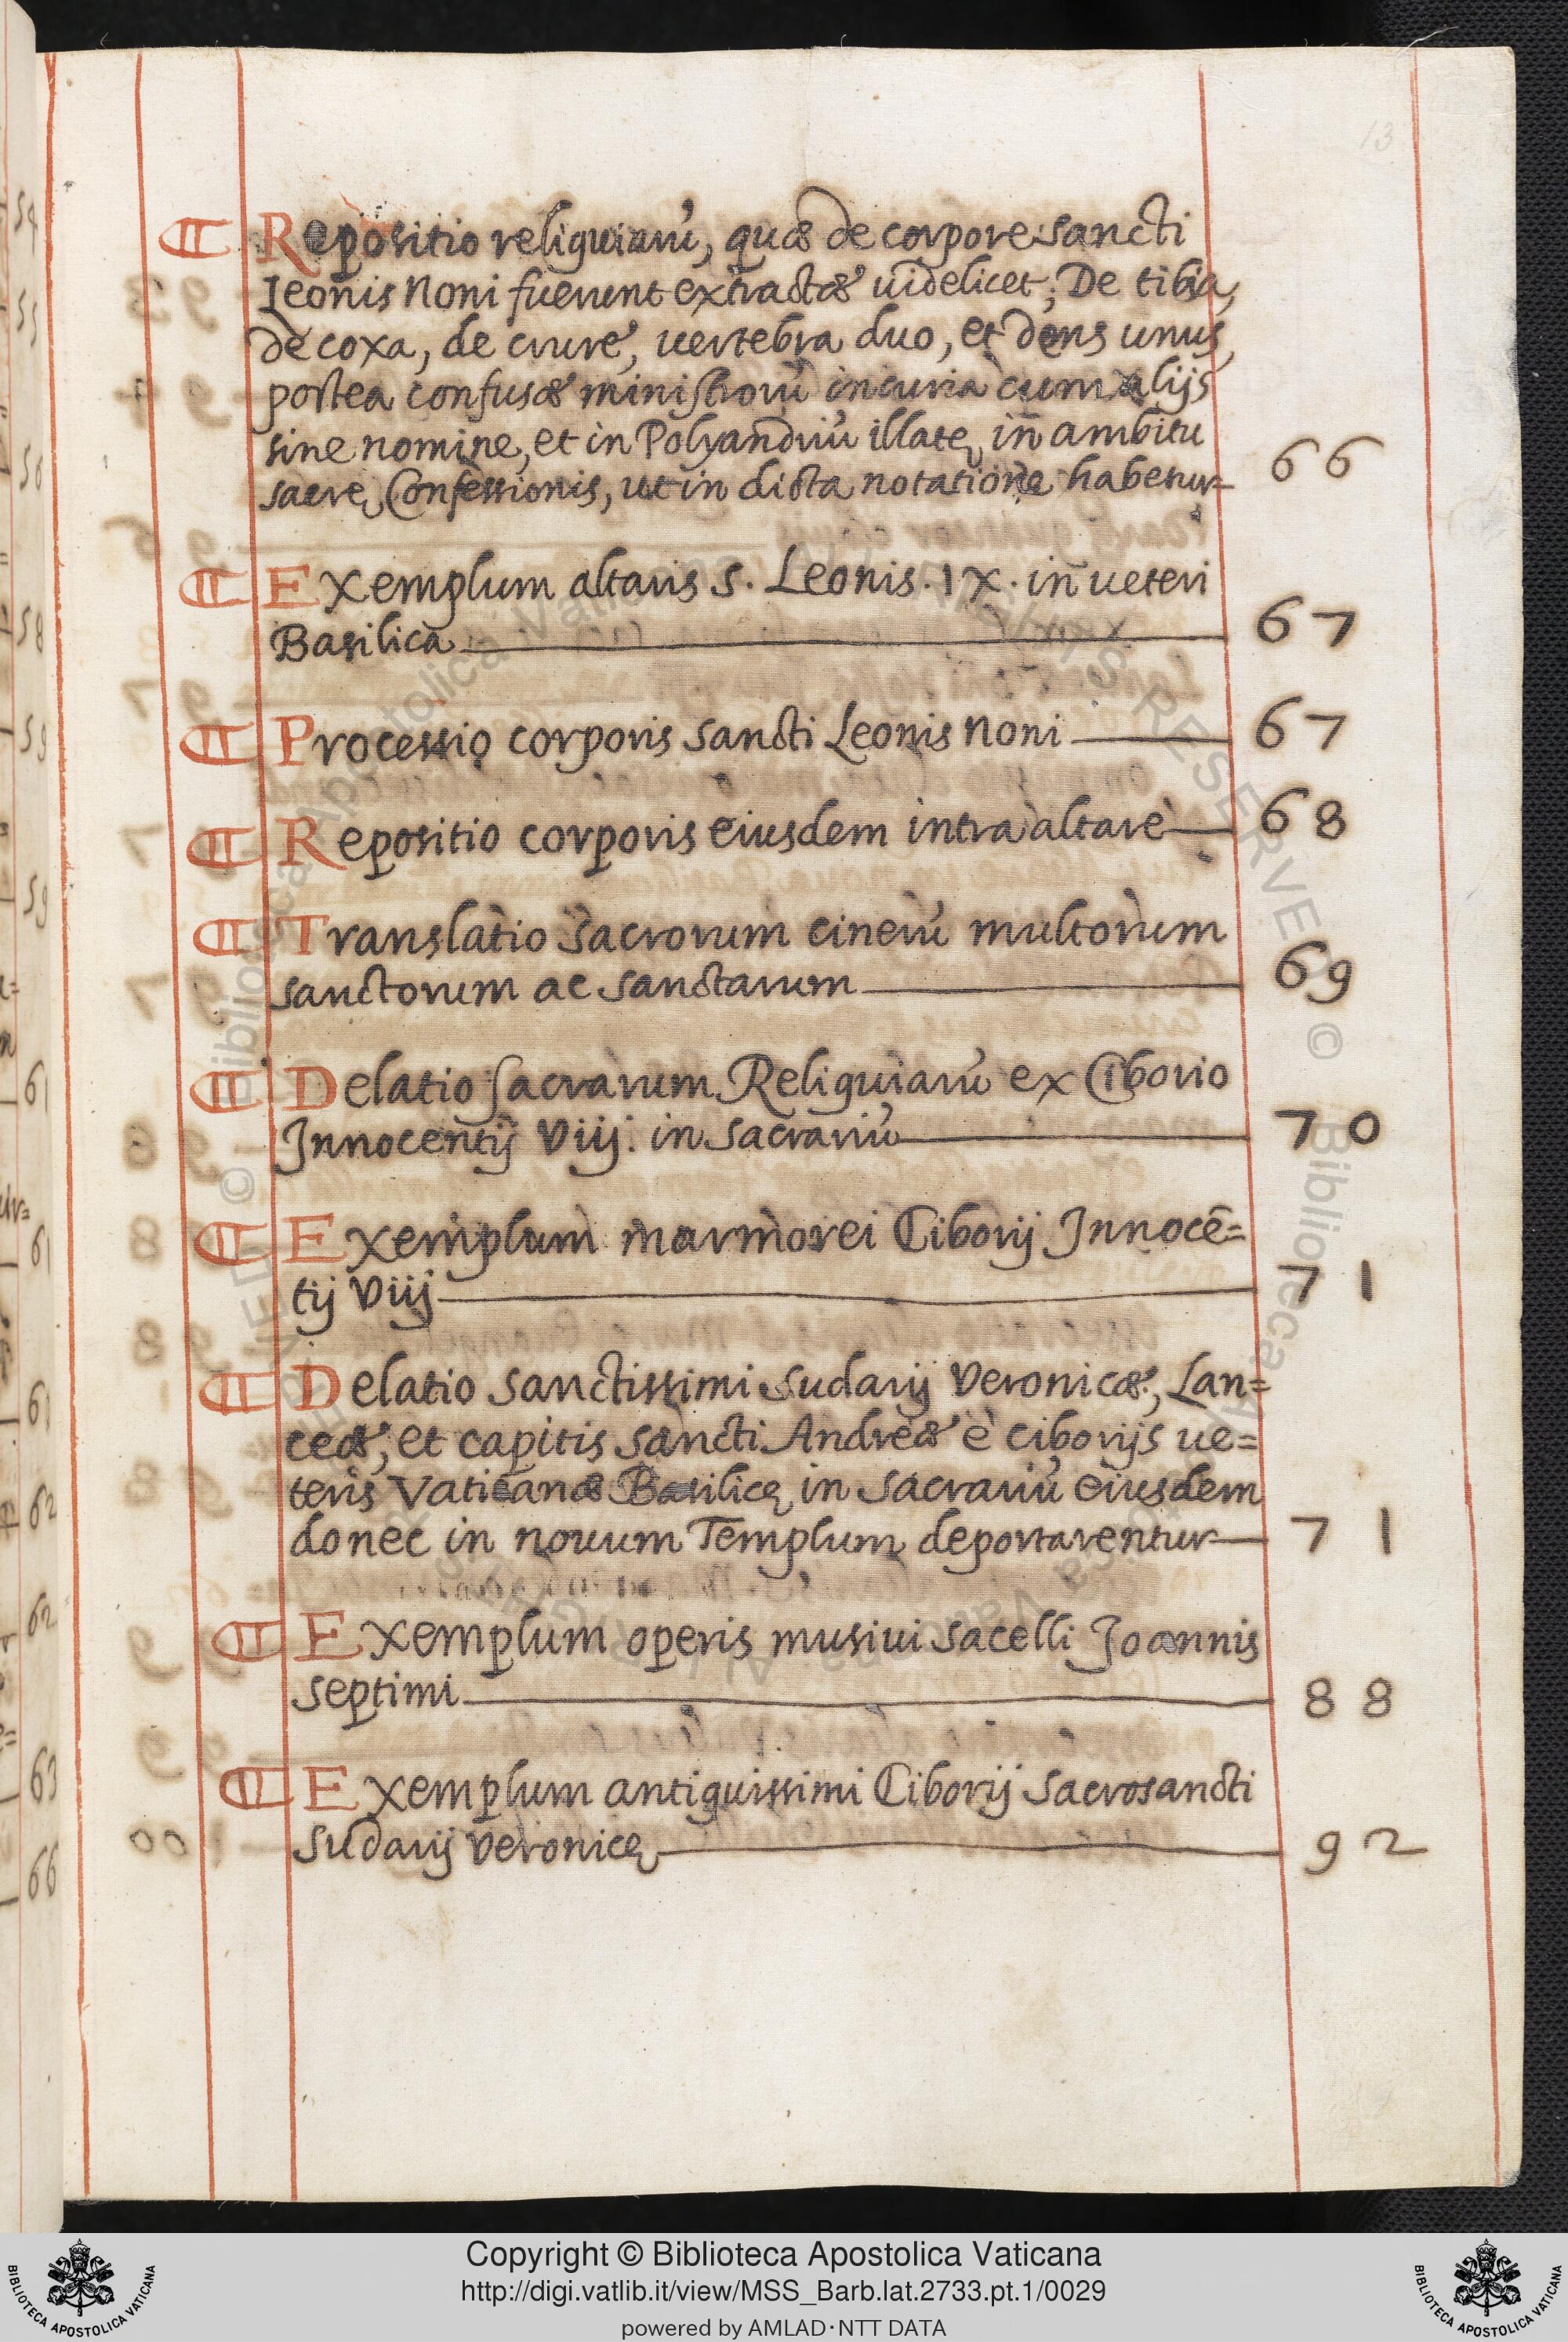 13
¶ Repositio reliquiarū, quæ de corpore sancti
Leonis Noni fuerunt extractæ uidelicet; De tibia,
de coxa, de crure, uertebra duo, et dens unus,
postea confusæ ministrorū incuria cum alijs
sine nomine, et in Polyandriū illatę in ambitu
sacrę Confessionis, ut in dicta notatione habetur 66
¶ Exemplum altaris S. Leonis .IX. in ueteri
Basilica 67
¶ Processio corporis sancti Leonis Noni 67
¶ Repositio corporis eiusdem intra altare 68
¶ Translatio sacrorum cinerū multorum
sanctorum ac sanctarum 69
¶ Delatio sacrarum Reliquiarū ex Ciborio
Innocentij Viij. in sacrariū 70
¶ Exemplum marmorei Ciborij Innocē=
tij Viij 71
¶ Delatio sanctissimi sudarij Veronicæ, Lan=
ceæ, et capitis sancti Andreæ è ciborijs ue=
teris Vaticanæ Basilicę in sacrariū eiusdem
donec in nouum Templum deportarentur 71
¶ Exemplum operis musiui sacelli Joannis
septimi 88
¶ Exemplum antiquissimi Ciborij sacrosancti
sudarij Veronicę 92
Copyright © Biblioteca Apostolica Vaticana
http://digi.vatlib.it/view/MSS_Barb.lat.2733.pt.1/0029
powered by AMLAD·NTT DATA
BIBLIOTECA APOSTOLICA VATICANA
BIBLIOTECA APOSTOLICA VATICANA